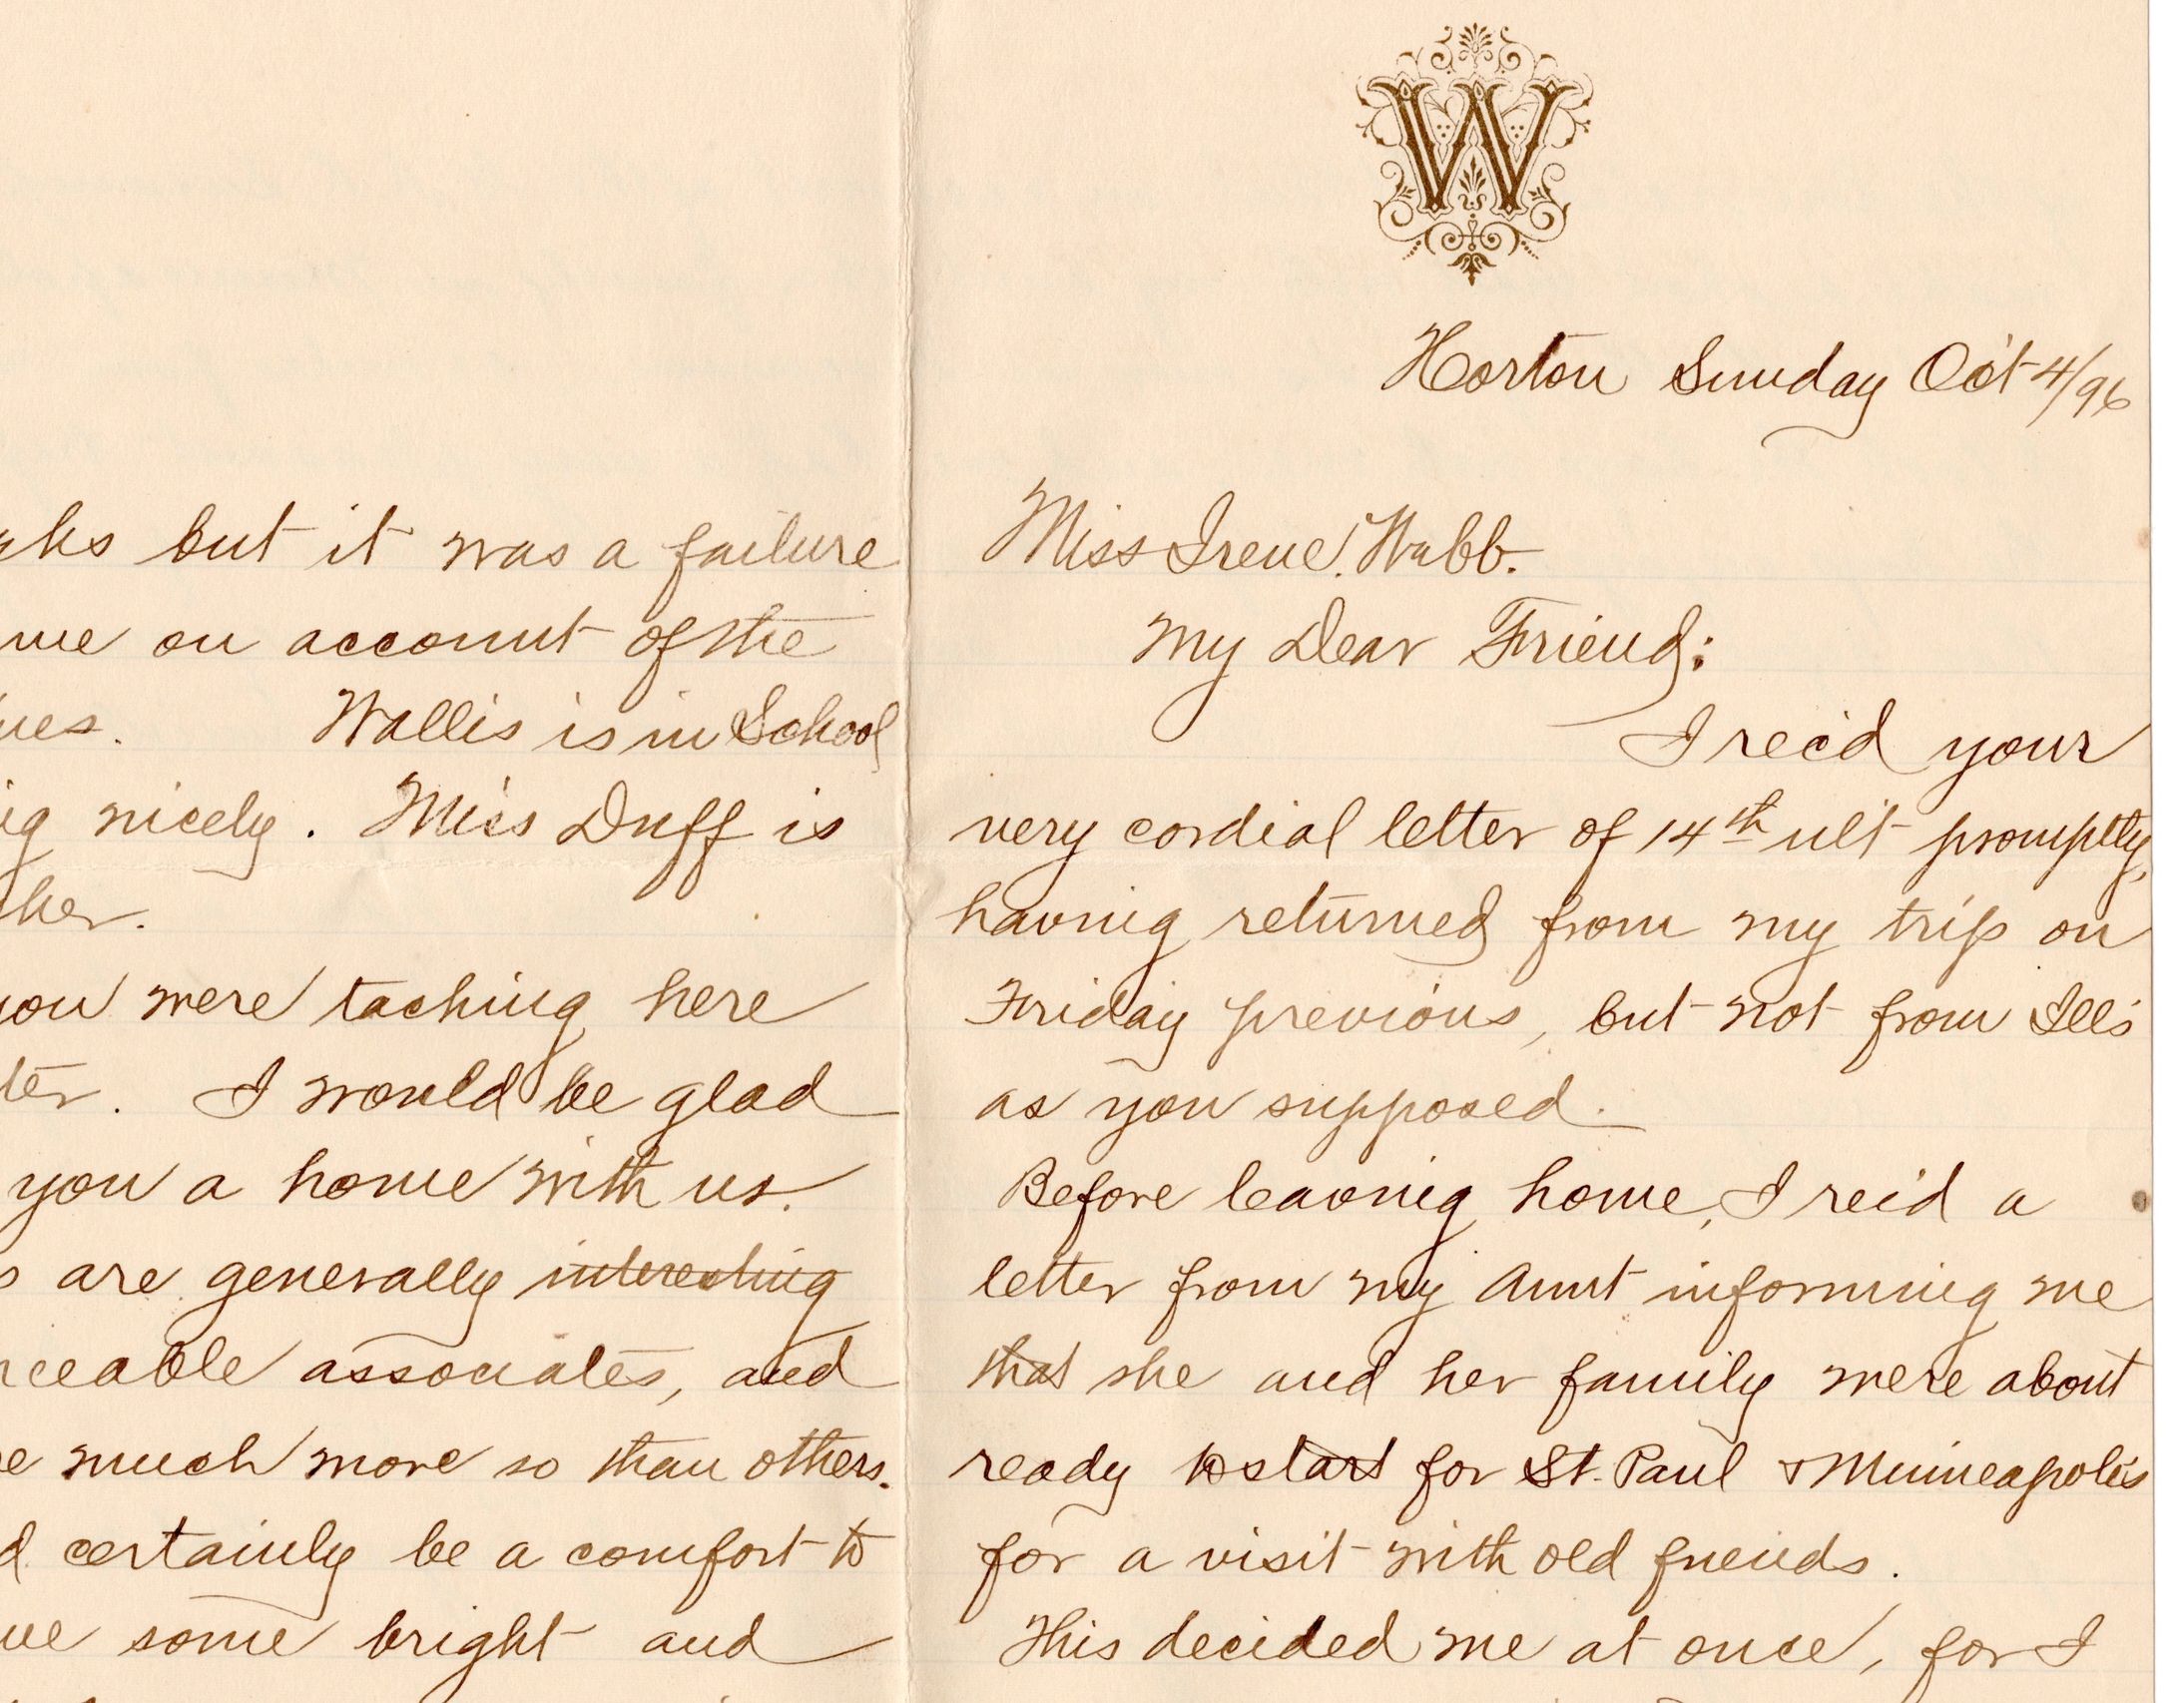 W
Horton Sunday Oct 4/96
Miss Irene. Webb.
My Dear Friend:
I rec'd your
very cordial letter of 14th ult promptly,
having returned from my trip on
Friday previous, but not from Ills
as you supposed.
Before leaving home, I rec'd a
letter from my Aunt informing me
that she and her family were about
ready to start for St. Paul & Minneapolis
for a visit with old friends.
This decided me at once, for I
but it was a failure
me on account of the
Wallis is in School
nicely. Miss Duff is
her.
you were taching here
I would be glad
you a home with us.
are generally interesting
associates, and
much more so than others.
certainly be a comfort to
some bright and